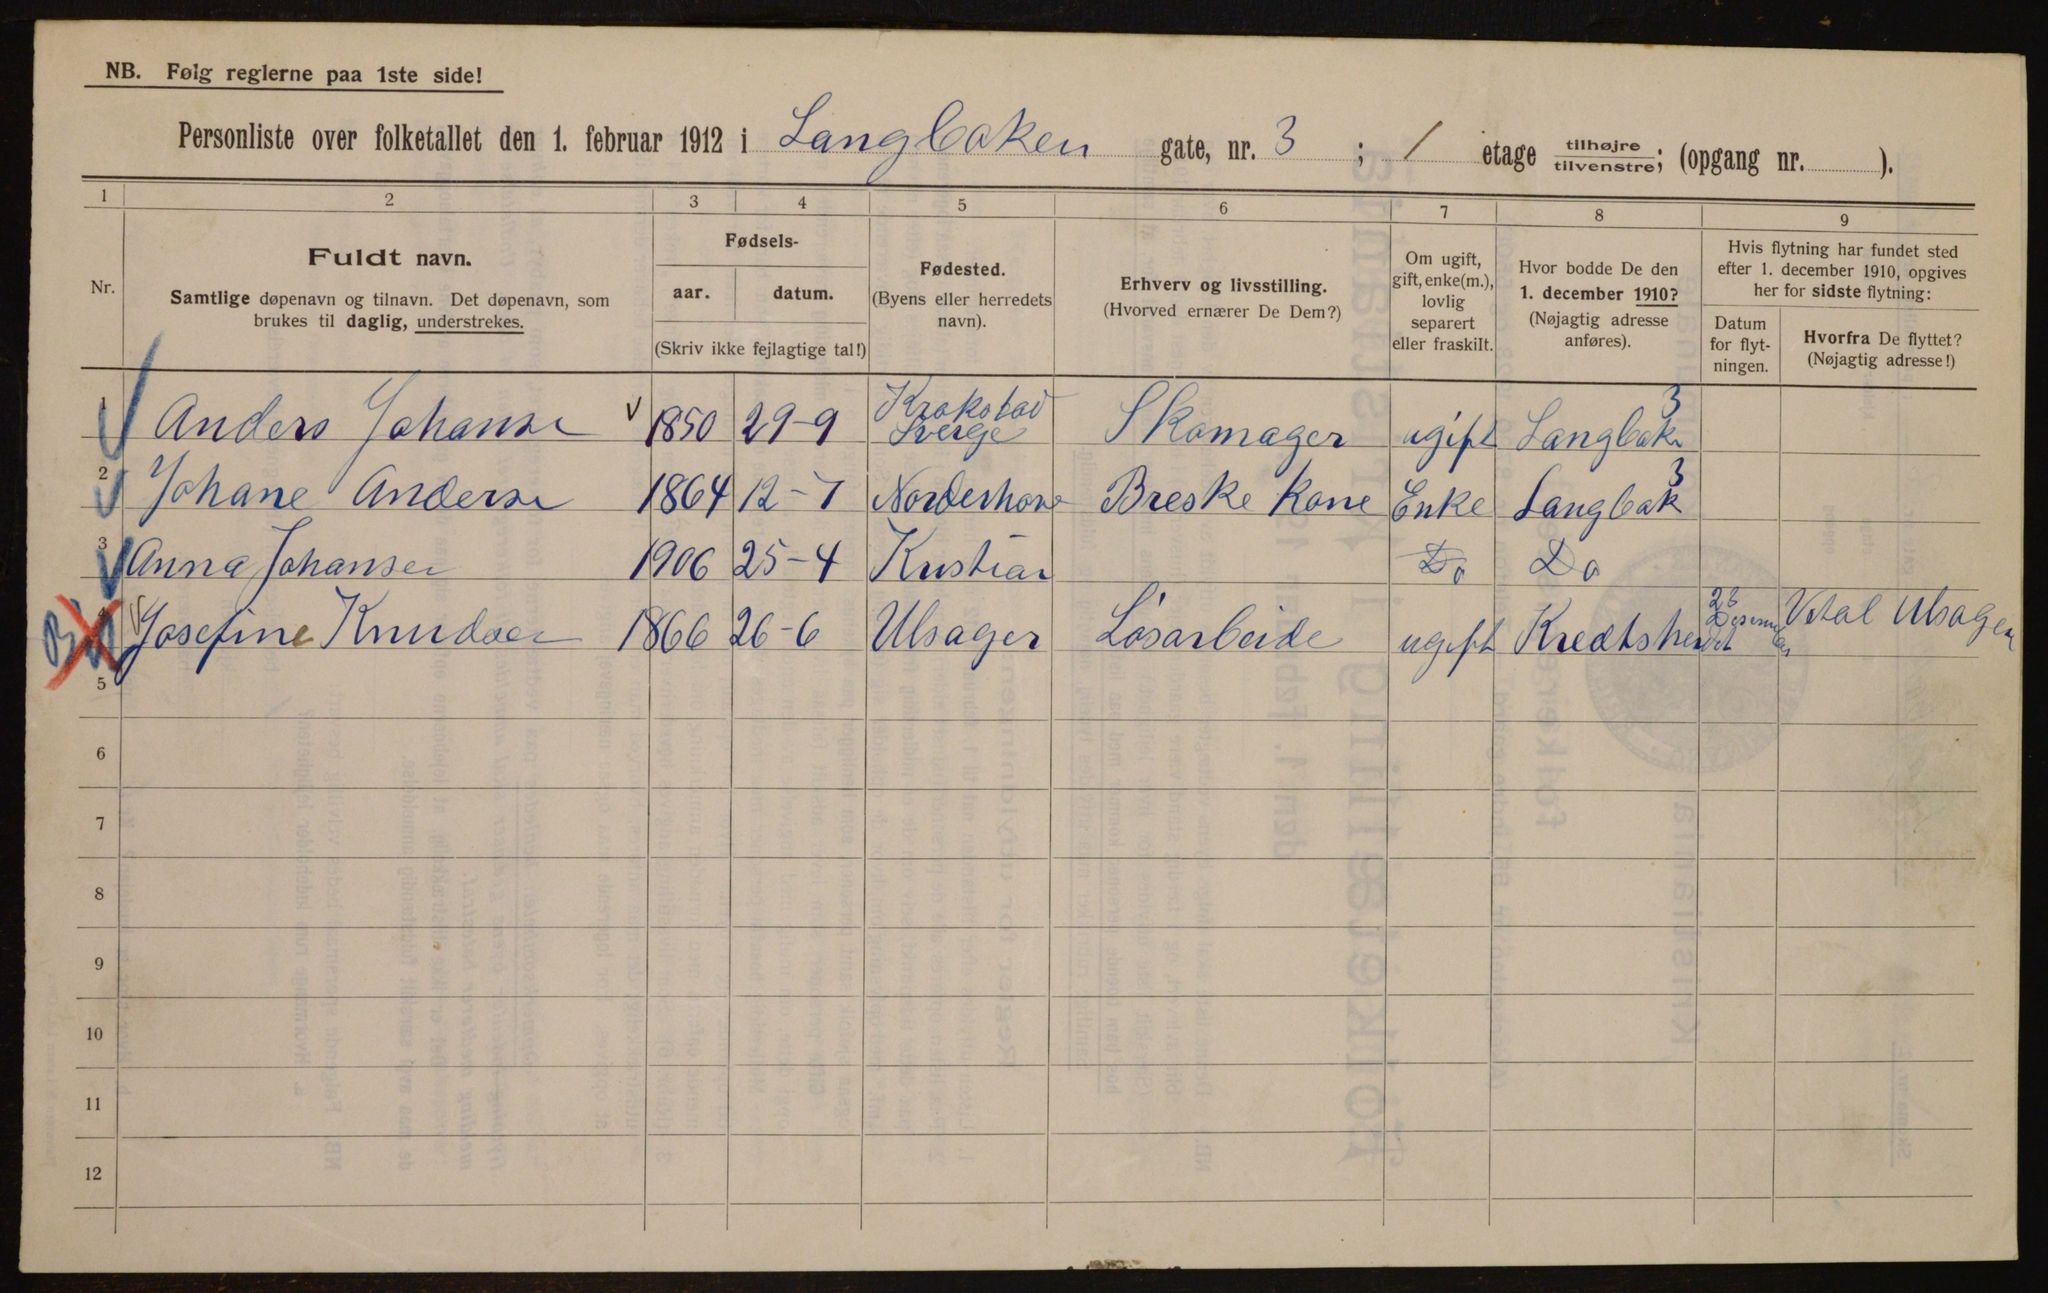 NB. Følg reglerne paa 1ste side!
Personliste over folketallet den 1. februar 1912 i Langbaken gate, nr. 3 ; 1 etage tilhøjre tilvenstre; (opgang nr. ).
1 2 3 4 5 6 7 8 9
Nr.
Fuldt navn.
Samtlige døpenavn og tilnavn. Det døpenavn, som
brukes til daglig, understrekes.
Fødsels-
aar. datum.
(Skriv ikke fejlagtige tal!)
Fødested.
(Byens eller herredets
navn).
Erhverv og livsstilling.
(Hvorved ernærer De Dem?)
Om ugift,
gift, enke(m.),
lovlig
separert
eller fraskilt.
Hvor bodde De den
1. december 1910?
(Nøjagtig adresse
anføres).
Hvis flytning har fundet sted
efter 1. december 1910, opgives
her for sidste flytning:
Datum
for flyt-
ningen.
Hvorfra De flyttet?
(Nøjagtig adresse!)
1 Anders Johanse 1850 29-9 Krokstad Sverge Skomager ugift Langbak 3
2 Johane Anderse 1864 12-7 Norderhov Breske kone Enke Langbak 3
3 Anna Johansen 1906 25-4 Kristian Do Do
4 Josefine Knudsen 1866 26-6 Ulsager Løsarbeide ugift 23 Ulsager
5
6
7
8
9
10
11
12